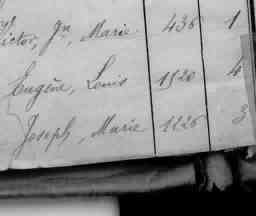 Victor, Jn, Marie 436 1
Eugène, Louis 1520 4
Joseph, Marie 1226 3